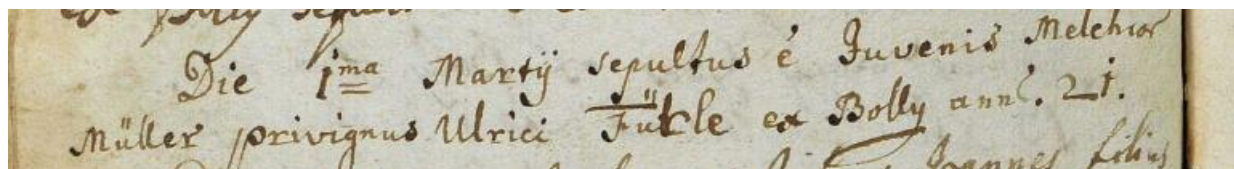 ex Bolly
Die 1ma Martÿ sepultus ê Juvenis Melchior
Müller privignus Ulrici Fükle ex Bolly ann̄. 21.
Joannes filius